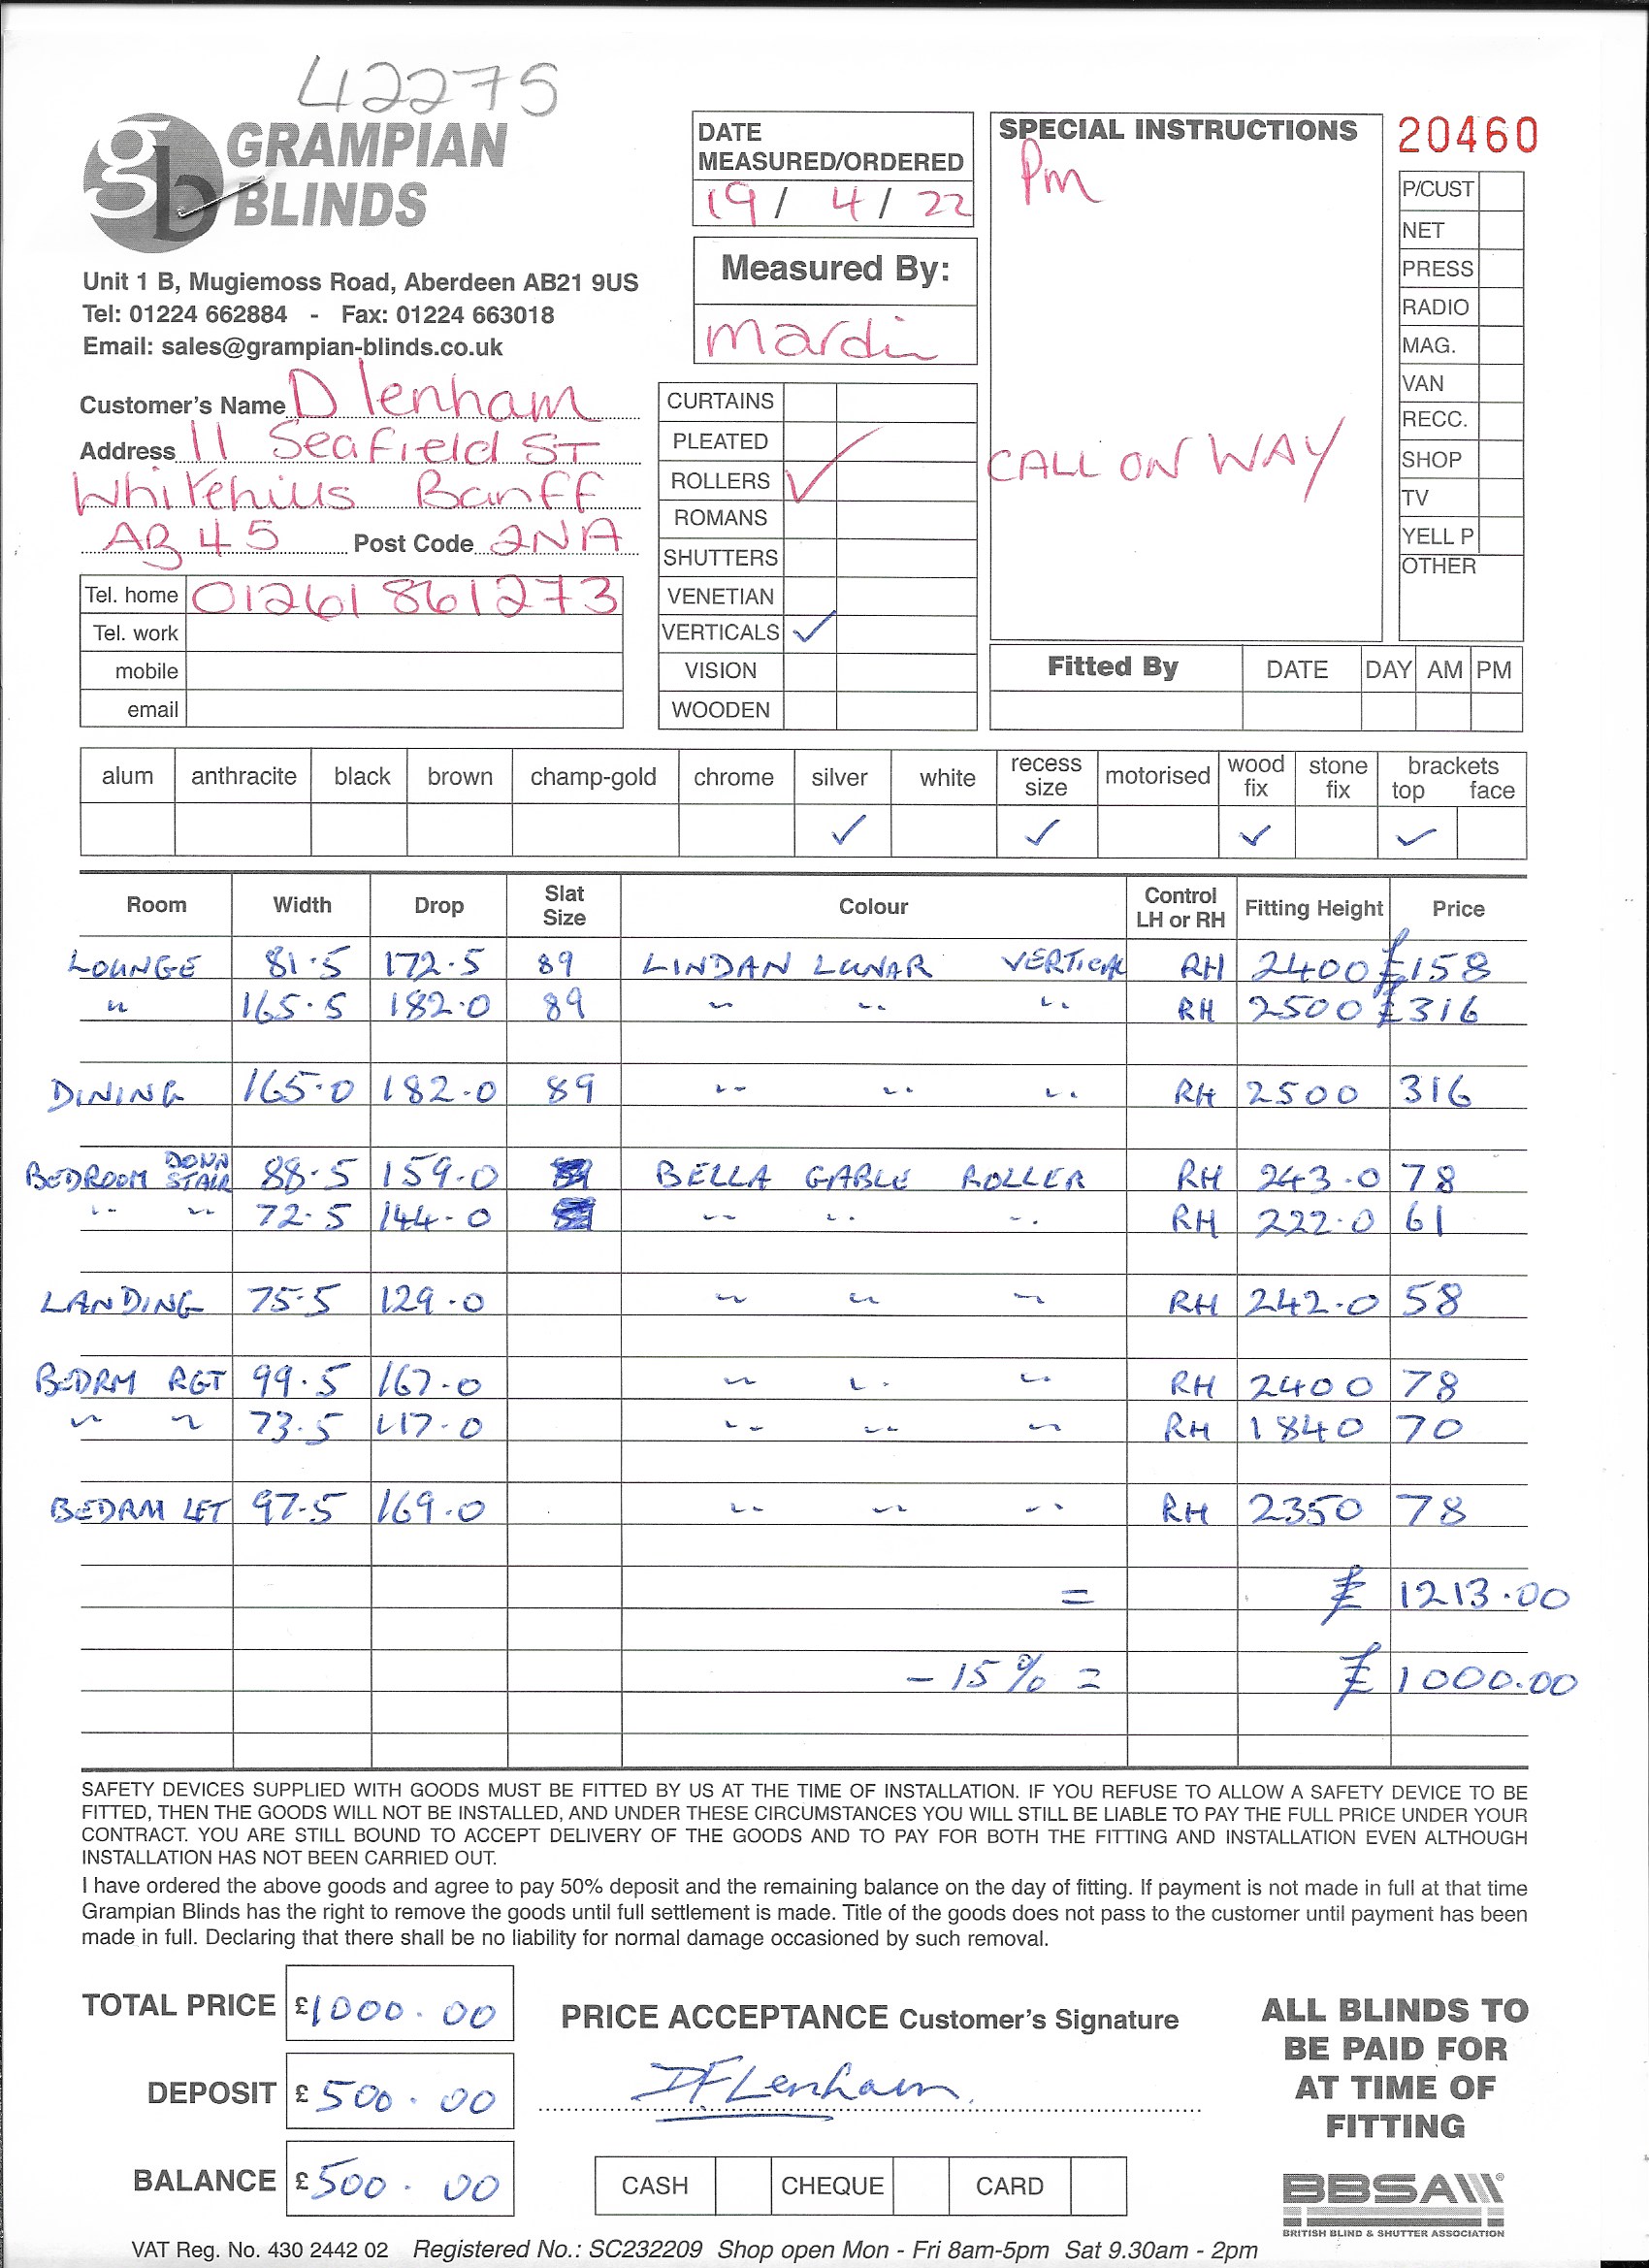 42275
GRAMPIAN
BLINDS
gb
Unit 1 B, Mugiemoss Road, Aberdeen AB21 9US
Tel: 01224 662884 - Fax: 01224 663018
Email: sales@grampian-blinds.co.uk
Customer's Name D lenham
Address 11 Seafield ST
Whitehills Banff
AB45 Post Code 2NA
Tel. home 01261 861273
Tel. work
mobile
email
DATE
MEASURED/ORDERED
19 / 4 / 22
Measured By:
mardi
CURTAINS
PLEATED
ROLLERS ✓
ROMANS
SHUTTERS
VENETIAN
VERTICALS ✓
VISION
WOODEN
SPECIAL INSTRUCTIONS
Pm
CALL ON WAY
20460
P/CUST
NET
PRESS
RADIO
MAG.
VAN
RECC.
SHOP
TV
YELL P
OTHER
Fitted By DATE DAY AM PM
alum anthracite black brown champ-gold chrome silver white recess size motorised wood fix stone fix brackets top face
✓ ✓ ✓ ✓
Room Width Drop Slat Size Colour Control LH or RH Fitting Height Price
LOUNGE 81.5 172.5 89 LINDAN LUNAR VERTICAL RH 2400 £158
" 165.5 182.0 89 " " " RH 2500 £316
DINING 165.0 182.0 89 " " " RH 2500 316
BEDROOM DOWN STAIR 88.5 159.0 BELLA GABLE ROLLER RH 243.0 78
" " 72.5 144.0 " " " RH 222.0 61
LANDING 75.5 129.0 " " " RH 242.0 58
BEDRM RGT 99.5 167.0 " " " RH 2400 78
" " 73.5 117.0 " " " RH 1840 70
BEDRM LFT 97.5 169.0 " " " RH 2350 78
= £ 1213.00
- 15% = £ 1000.00
SAFETY DEVICES SUPPLIED WITH GOODS MUST BE FITTED BY US AT THE TIME OF INSTALLATION. IF YOU REFUSE TO ALLOW A SAFETY DEVICE TO BE
FITTED, THEN THE GOODS WILL NOT BE INSTALLED, AND UNDER THESE CIRCUMSTANCES YOU WILL STILL BE LIABLE TO PAY THE FULL PRICE UNDER YOUR
CONTRACT. YOU ARE STILL BOUND TO ACCEPT DELIVERY OF THE GOODS AND TO PAY FOR BOTH THE FITTING AND INSTALLATION EVEN ALTHOUGH
INSTALLATION HAS NOT BEEN CARRIED OUT.
I have ordered the above goods and agree to pay 50% deposit and the remaining balance on the day of fitting. If payment is not made in full at that time
Grampian Blinds has the right to remove the goods until full settlement is made. Title of the goods does not pass to the customer until payment has been
made in full. Declaring that there shall be no liability for normal damage occasioned by such removal.
TOTAL PRICE £1000.00
DEPOSIT £500.00
BALANCE £500.00
PRICE ACCEPTANCE Customer's Signature
DFLenham
CASH CHEQUE CARD
ALL BLINDS TO
BE PAID FOR
AT TIME OF
FITTING
BBSA
BRITISH BLIND & SHUTTER ASSOCIATION
VAT Reg. No. 430 2442 02 Registered No.: SC232209 Shop open Mon - Fri 8am-5pm Sat 9.30am - 2pm